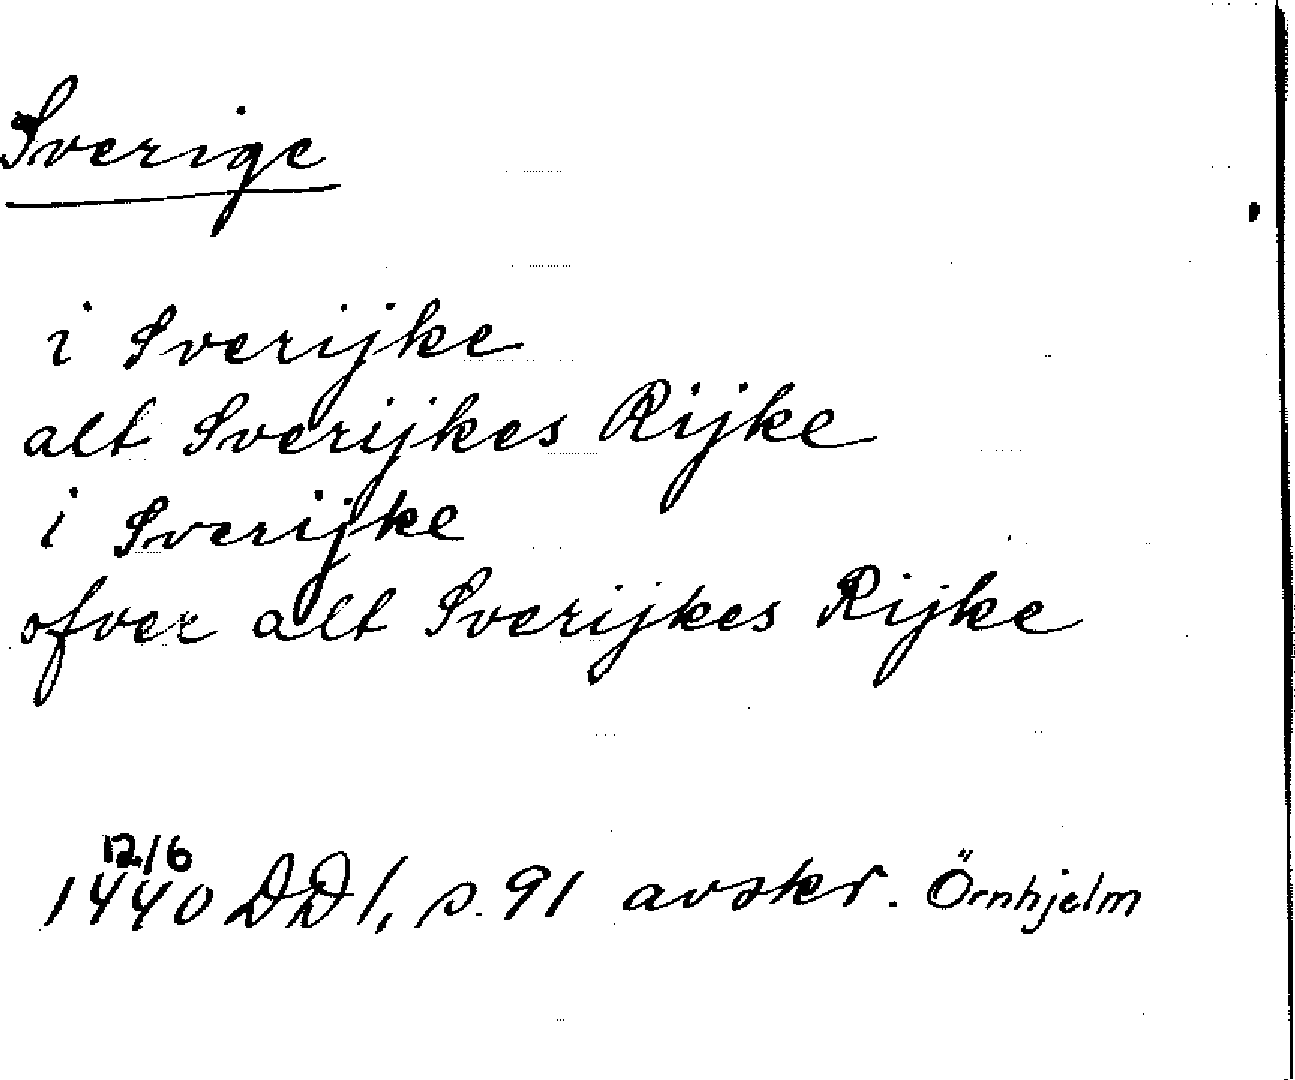 Sverige
i Sverijke
alt Sverijkes Rijke
i Sverijke
ofver alt Sverijkes Rijke
12/6
1440 DD1, s. 91 avskr. Örnhjelm